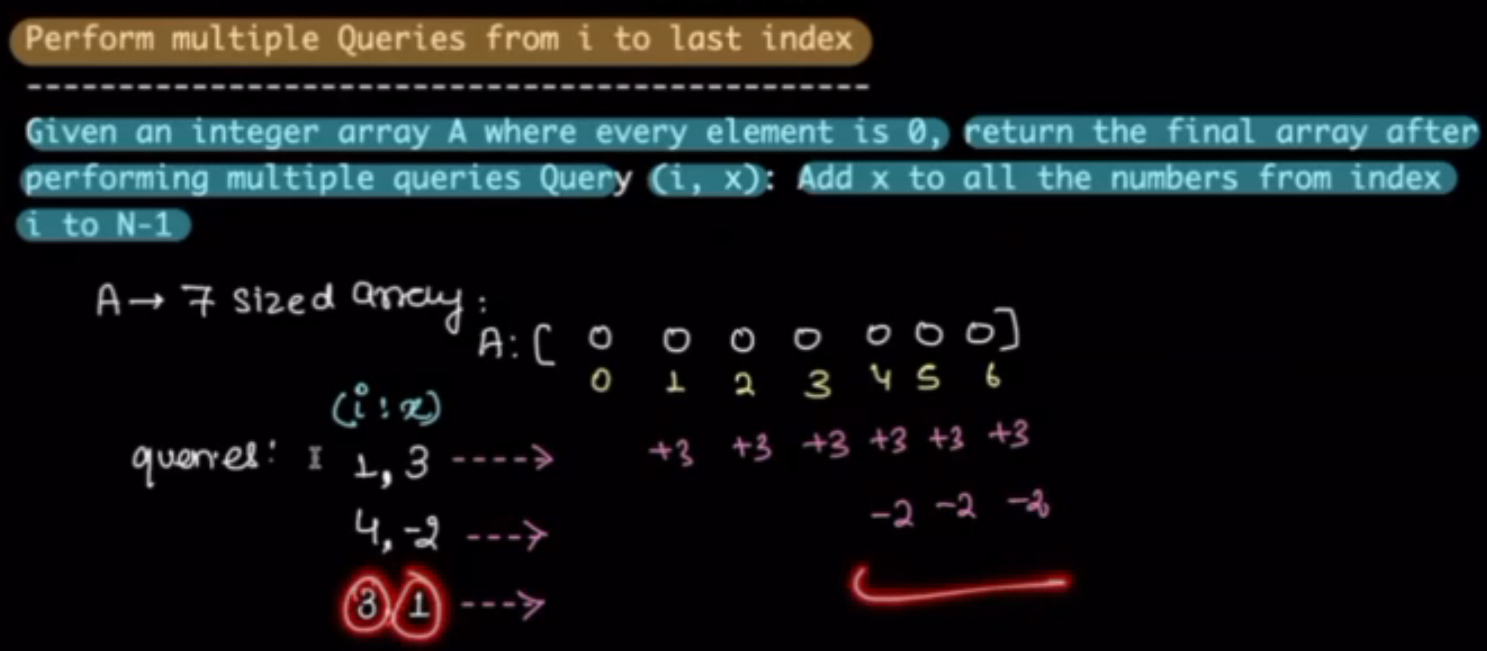 Perform multiple Queries from i to last index
----------------------------------------------
Given an integer array A where every element is 0, return the final array after
performing multiple queries Query (i, x): Add x to all the numbers from index
i to N-1
A→ 7 sized array:
A: [ 0 0 0 0 0 0 0 ]
0 1 2 3 4 5 6
(i : x)
queries: 1, 3 ----> +3 +3 +3 +3 +3 +3
4, -2 ---> -2 -2 -2
3, 1 --->